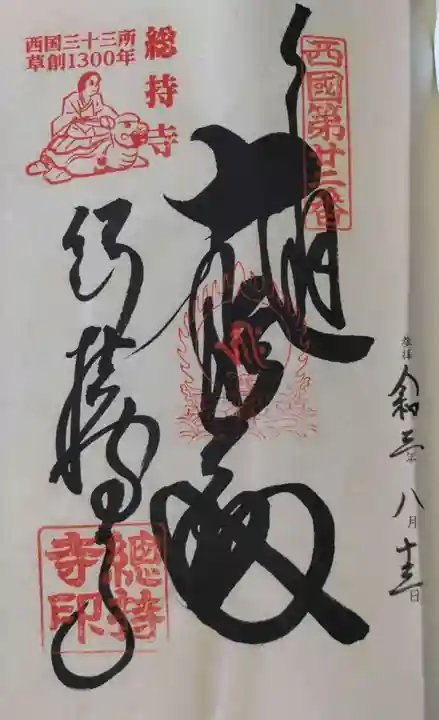 西國第廿二番
奉拝
令和三年
八月
十三日
大悲殿
総持寺
総持寺
西国三十三所
草創1300年
總持
寺印